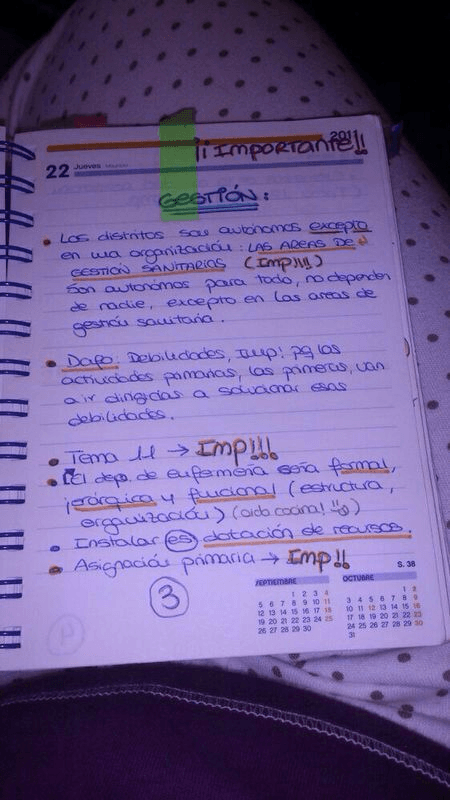 2011
¡¡IMPORTANTE!!
22 Jueves
GESTIÓN:
• Los distritos son autónomos excepto
en una organización: LAS AREAS DE
GESTION SANITARIAS (Imp!!!!)
Son autónomos para todo, no dependen
de nadie, excepto en las areas de
gestión sanitaria.
• Dafo: Debilidades, Imp! pq las
actividades primarias, las primeras, van
a ir dirigidas a solucionar esas
debilidades.
• Tema 11 → Imp!!!
• El dep. de enfermería sería formal,
jerárquica y funcional (estructura,
organización) (oido cocina!)
• Instalar es dotación de recursos.
• Asignación primaria → Imp!!
3
S. 38
SEPTIEMBRE
1 2 3 4
5 6 7 8 9 10 11
12 13 14 15 16 17 18
19 20 21 22 23 24 25
26 27 28 29 30
OCTUBRE
1 2
3 4 5 6 7 8 9
10 11 12 13 14 15 16
17 18 19 20 21 22 23
24 25 26 27 28 29 30
31